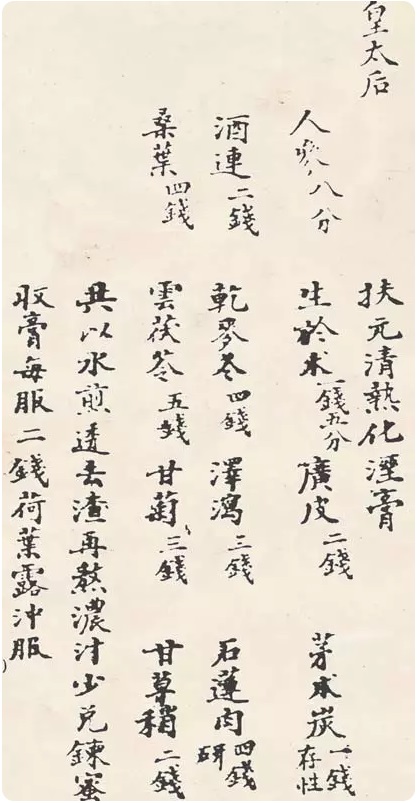 皇太后
扶元清熱化溼膏
人參八分 生於朮一錢五分 廣皮二錢 茅朮炭一錢存性
酒連二錢 乾麥冬四錢 澤瀉三錢 石蓮肉四錢研
桑葉四錢 雲茯苓五錢 甘菊三錢 甘草稍二錢
共以水煎透去渣再熬濃汁少兌鍊蜜
收膏每服二錢荷葉露沖服